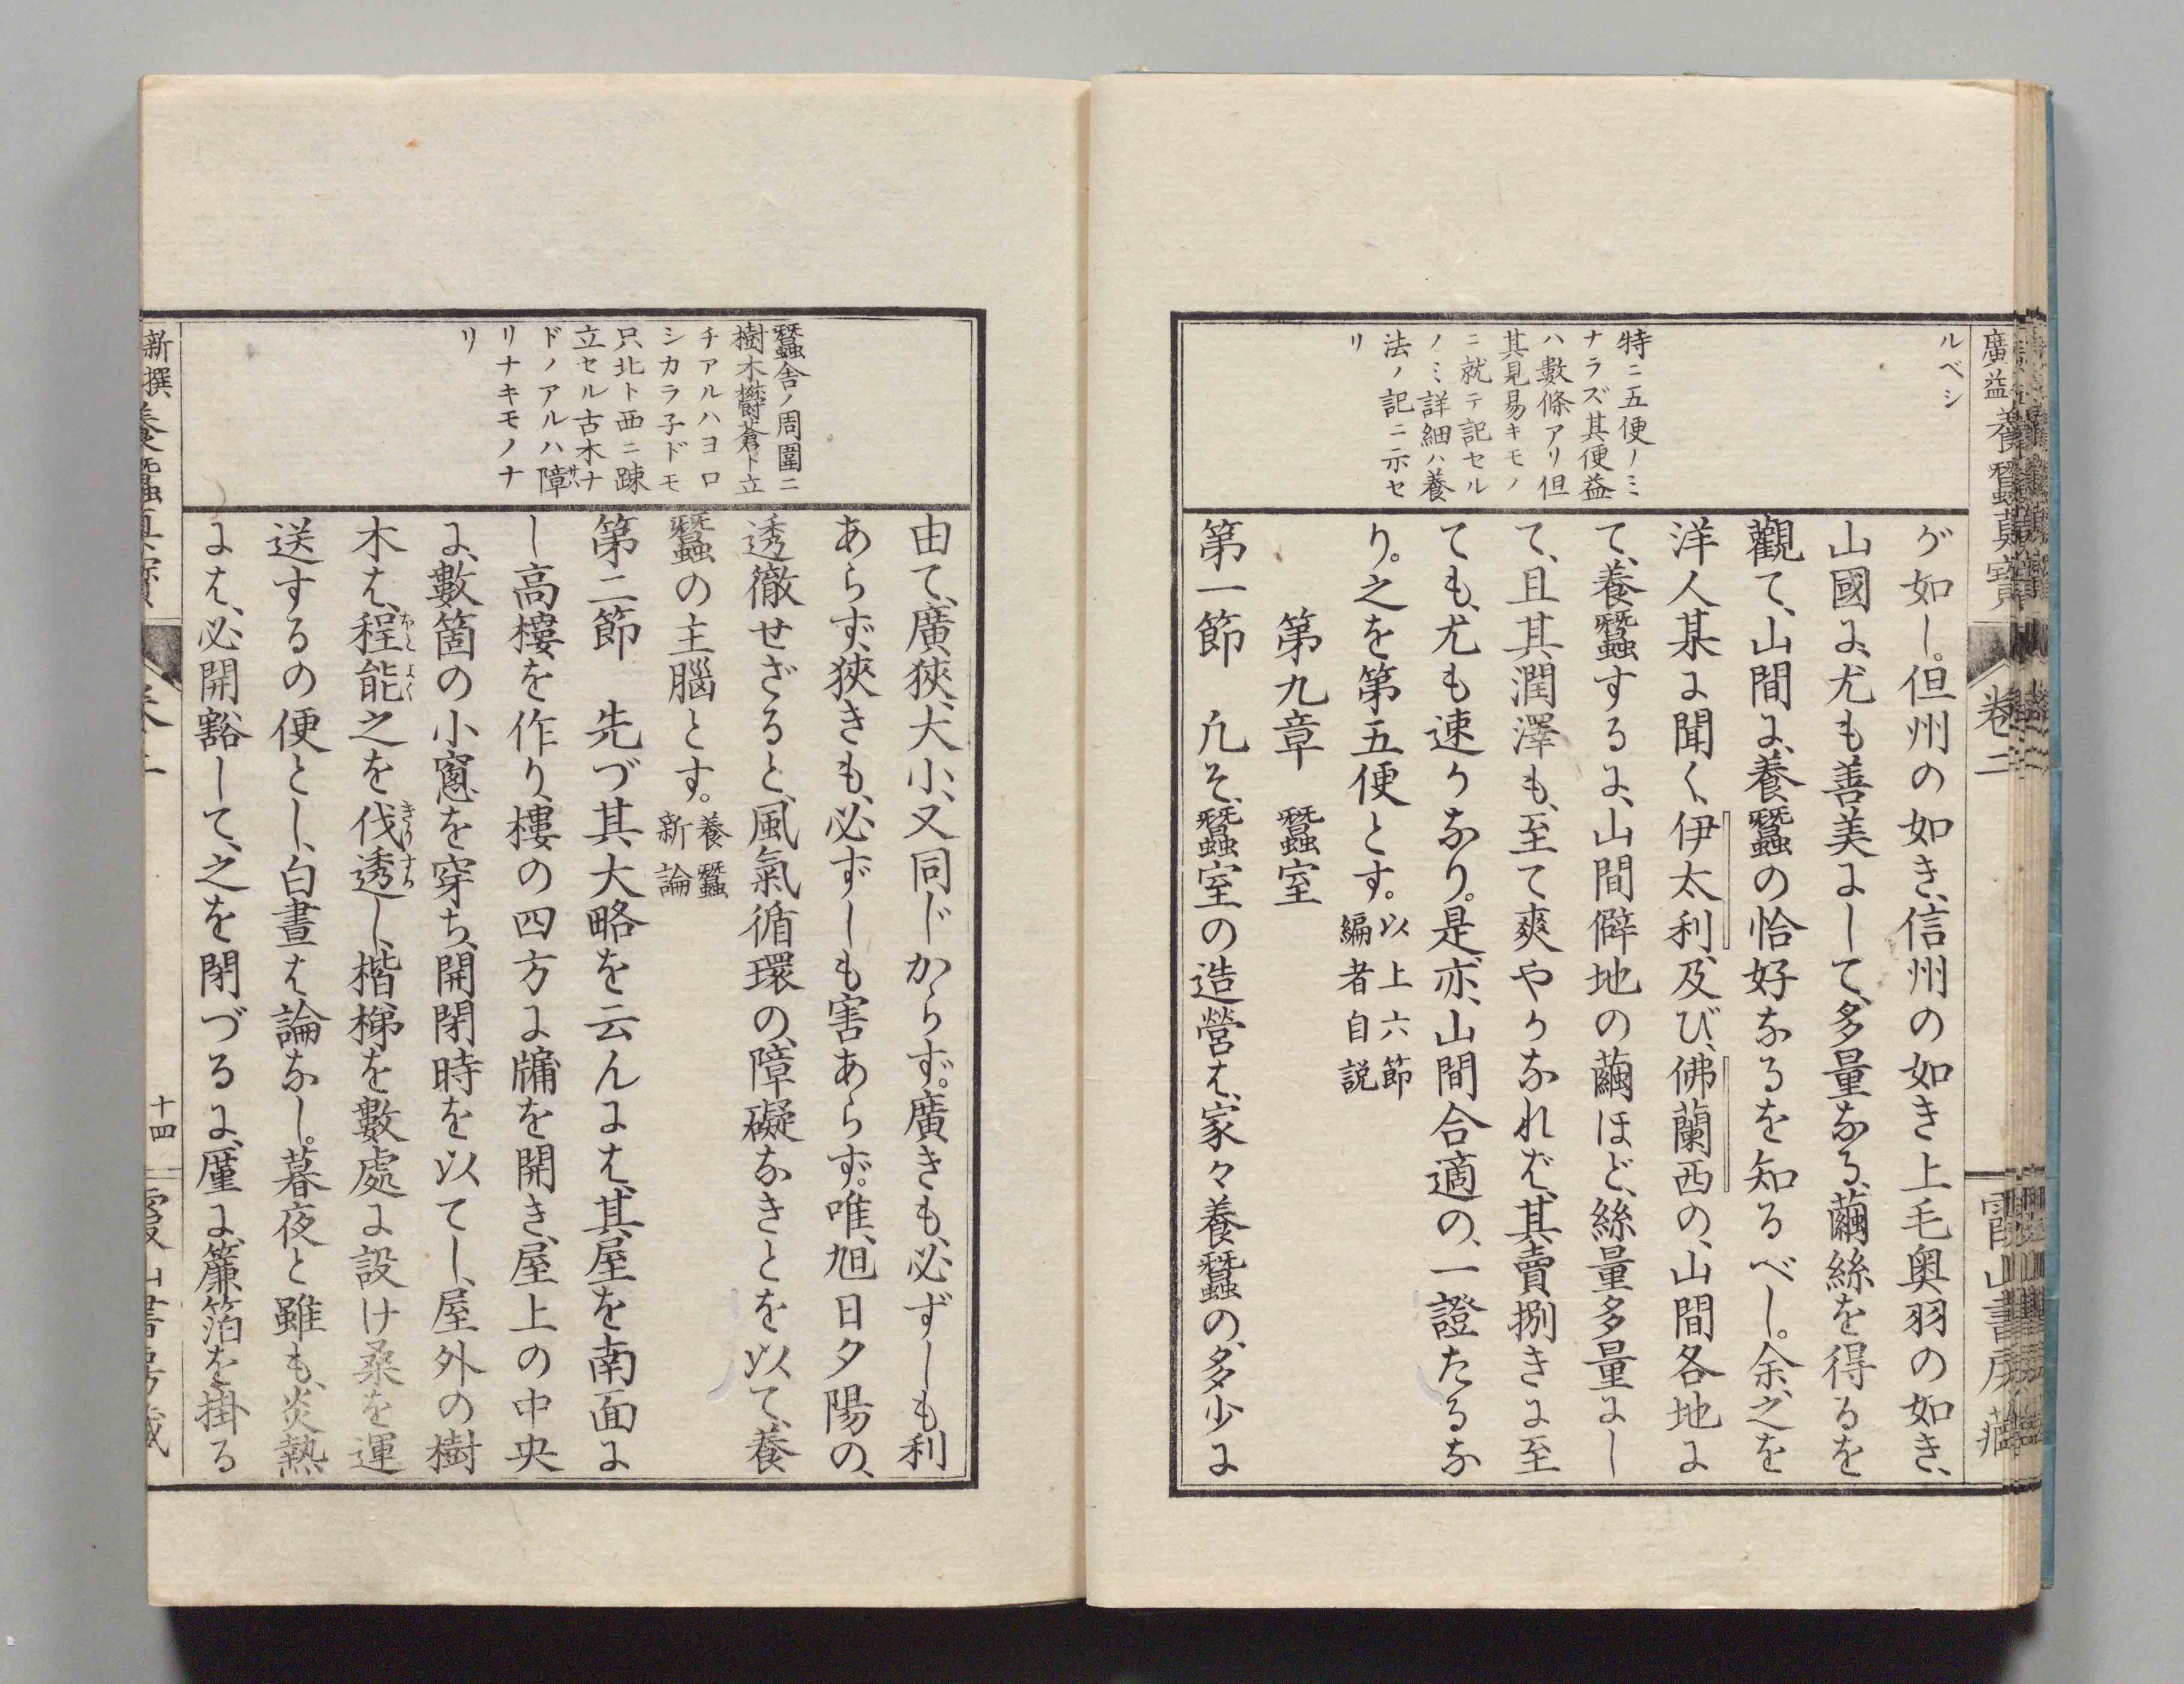 廣益養蠶真寶
卷二
霞山書房藏
ルベシ
特ニ五便ノミ
ナラズ其便益
ハ數條アリ但
其見易キモノ
ニ就テ記セル
ノミ詳細ハ養
法ノ記ニ示セ
リ
ゲ如し。但州の如き、信州の如き上毛奥羽の如き、
山國に、尤も善美にして、多量なる、繭絲を得るを
觀て、山間に、養蠶の恰好なるを知るべし。余、之を
洋人某に聞く、伊太利、及び、佛蘭西の、山間各地に
て、養蠶するに、山間僻地の繭ほど、絲量多量にし
て、且其潤澤も、至て爽やかなれバ、其賣捌きに至
ても、尤も速かなり。是亦、山間合適の、一證たるな
り。之を第五便とす。以上六節編者自説
第九章 蠶室
第一節 凡そ、蠶室の造營は、家々養蠶の、多少に
蠶舎ノ周圍ニ
樹木欝蒼ト立
チアルハヨロ
シカラ子ドモ
只北ト西ニ踈
立セル古木ナ
ドノアルハ障サハ
リナキモノナ
リ
由て、廣狹、大小、又同じからず。廣きも、必ずしも利
あらず、狹きも、必ずしも害あらず。唯、旭日夕陽の、
透徹せざると、風氣循環の、障礙なきとを以て、養
蠶の主腦とす。養蠶新論
第二節 先づ其大略を云んには、其屋を南面に
し高樓を作り、樓の四方に牖を開き、屋上の中央
に、數箇の小窻を穿ち、開閉時を以てし、屋外の樹
木は、程能ほどよく之を、伐透きりすかし、楷梯を數處に設け桑を運
送するの便とし、白晝は論なし。暮夜と雖も、炎熱
には、必開豁して、之を閉づるに、厪に、簾箔を掛る
新撰養蠶真寶
十四